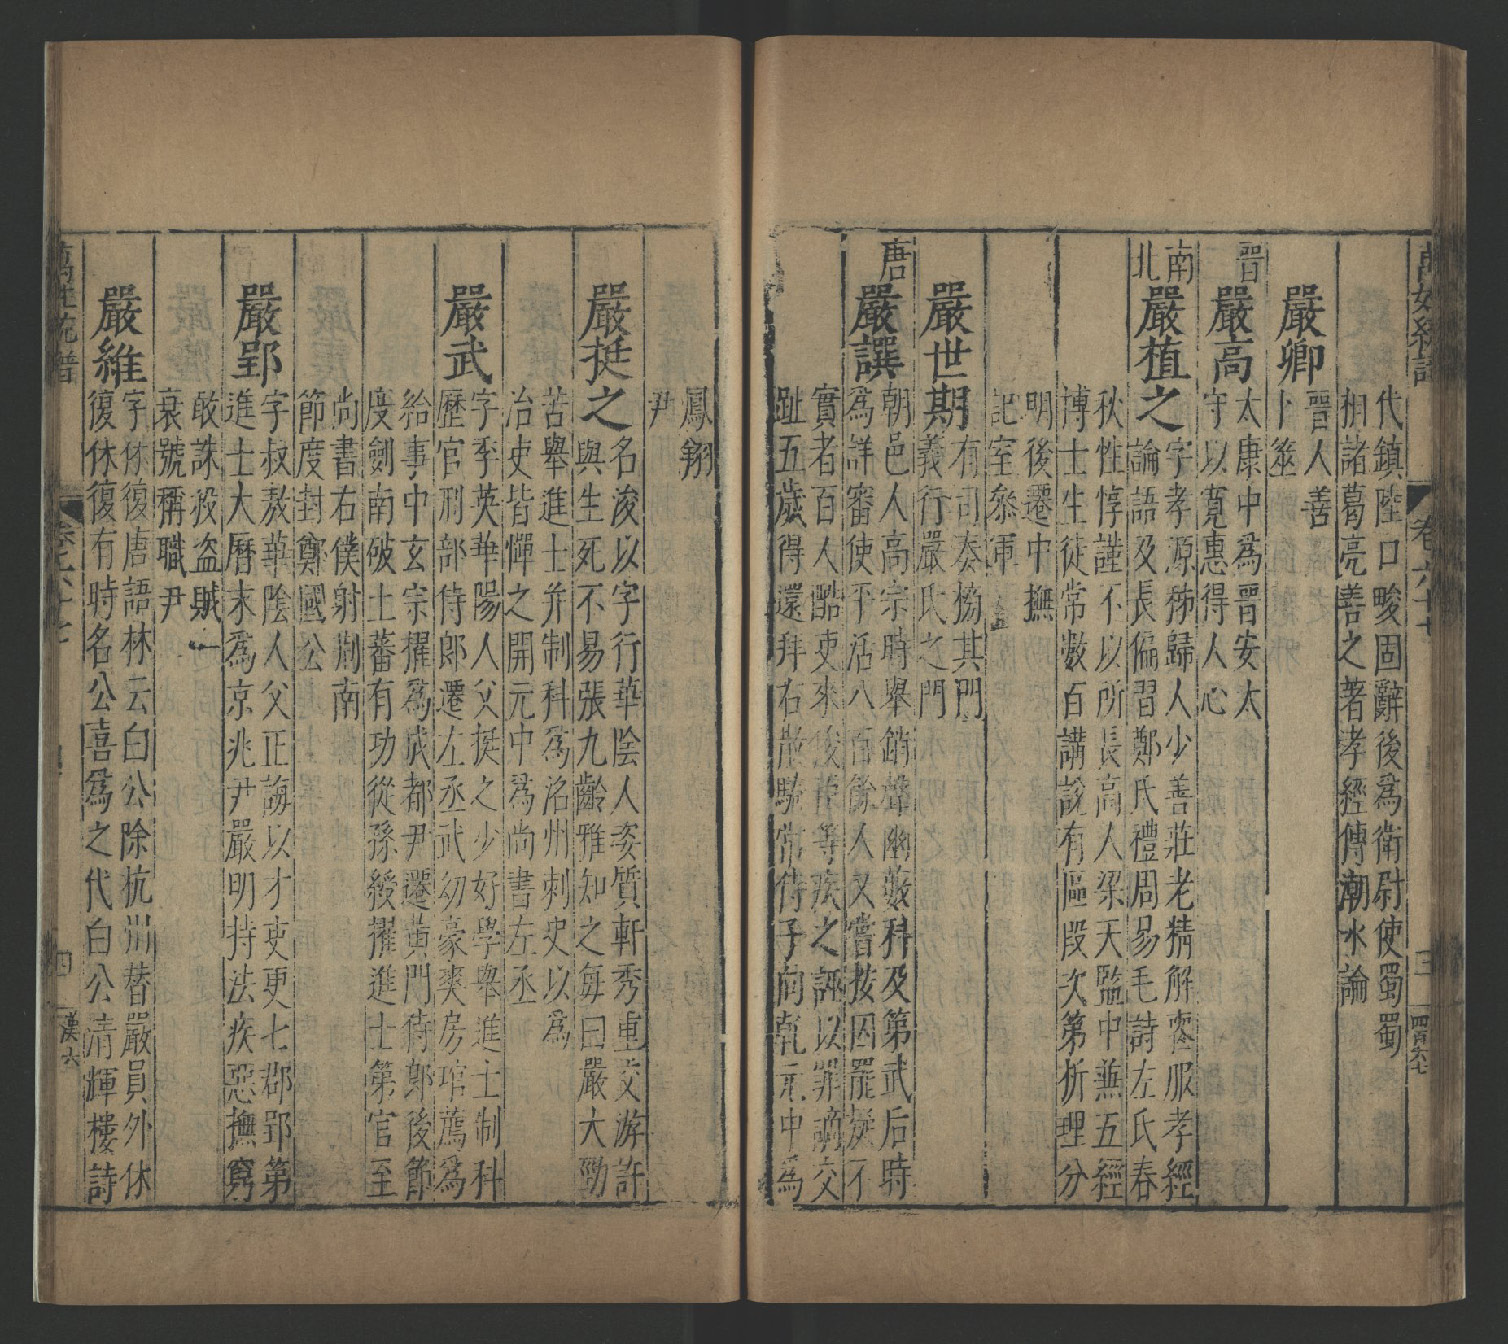 萬姓統譜
卷六十七
三
代鎮陸口畯固辭後爲衛尉使蜀蜀
相諸葛亮善之著孝經傳潮水論
嚴卿
晉人善
卜筮
晉
嚴高
太康中爲晉安太
守以寬惠得人心
南北
嚴植之
字孝源秭歸人少善莊老精解喪服孝經
論語及長偏習鄭氏禮周易毛詩左氏春
秋性惇謹不以所長高人梁天監中兼五經
博士生徒常數百講說有區段次第析理分
明後遷中撫
記室參軍
嚴世期
有司奏榜其門
義行嚴氏之門
唐
嚴譔
朝邑人高宗時舉銷聲幽藪科及第武后時
爲詳審使平活八百餘人又嘗按囚罷疑不
實者百人酷吏來俊臣等疾之誣以罪謫交
趾五歲得還拜右散騎常侍子向乾元中爲
鳳翔
尹
嚴挺之
名浚以字行華陰人姿質軒秀重交游許
與生死不易張九齡雅知之每曰嚴大勁
苦舉進士并制科爲洺州刺史以爲
冶史皆憚之開元中爲尚書左丞
嚴武
字季英華陽人父挺之少好學舉進士制科
歷官刑部侍郎遷左丞武幼豪爽房琯薦爲
給事中玄宗擢爲成都尹遷黃門侍郎後節
度劍南破土蕃有功從孫綬擢進士第官至
尚書右僕射荆南
節度封鄭國公
嚴郢
字叔敖華陰人父正誨以才吏更七郡郢第
進士大曆末爲京兆尹嚴明持法疾惡撫窮
敢誅殺盗賊一
衰號稱職尹
嚴維
字休復唐語林云白公除杭州替嚴員外休
復休復有時名公喜爲之代白公清輝樓詩
萬姓統譜
卷六十七
四